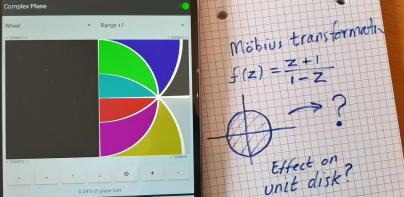 Complex Plane
Wheel
Range ±1
0.04% of plane lost
Möbius transformati
f(z) = z+1
1-z
?
Effect on
unit disk?